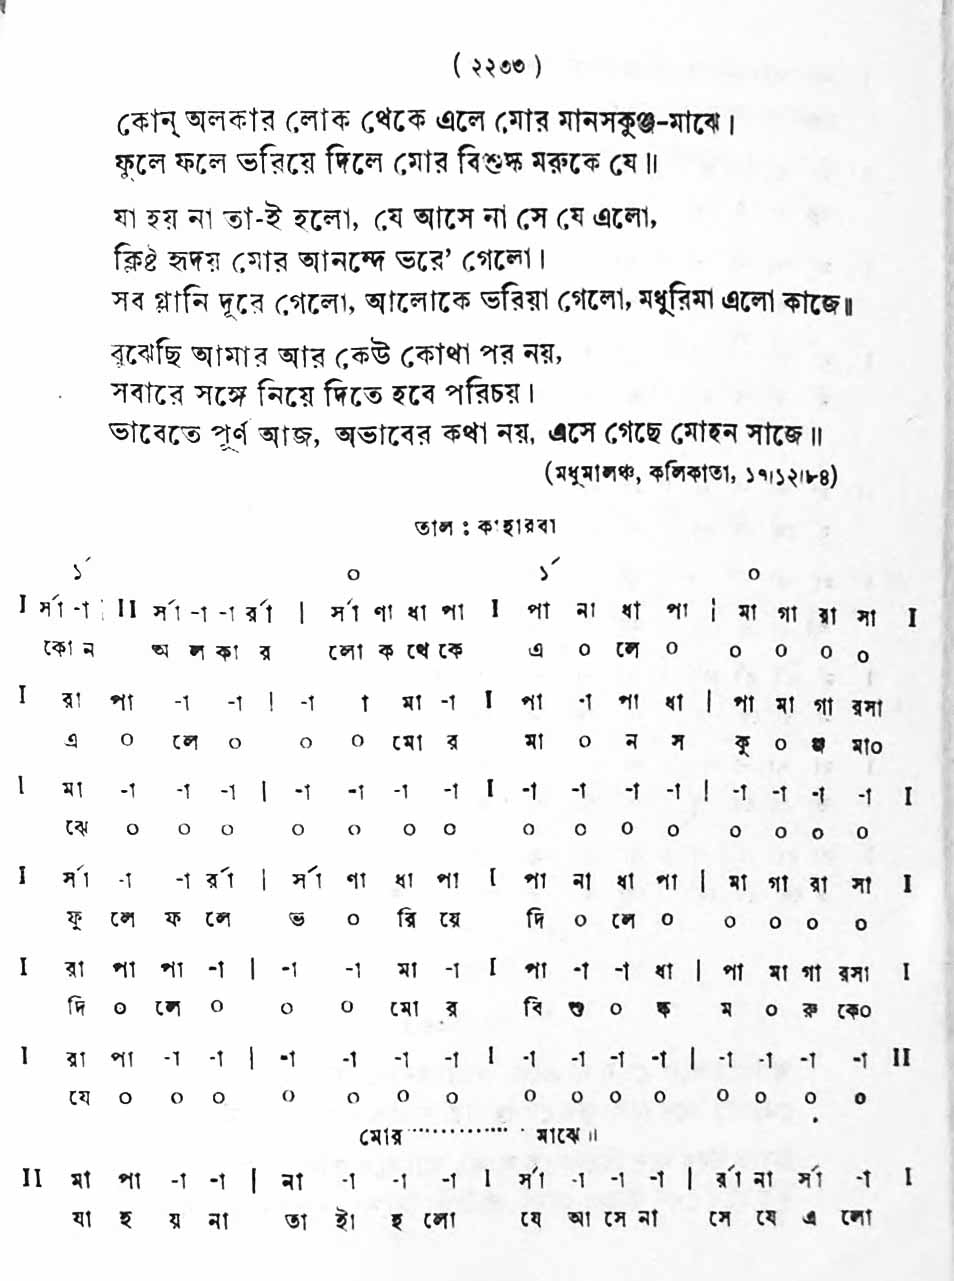 ( ২২৩৩ )
কোন্ অলকার লোক থেকে এলে মোর মানসকুঞ্জ-মাঝে।
ফুলে ফলে ভরিয়ে দিলে মোর বিশুষ্ক মরুকে যে॥
যা হয় না তা-ই হলো, যে আসে না সে যে এলো,
ক্লিষ্ট হৃদয় মোর আনন্দে ভরে' গেলো।
সব গ্লানি দূরে গেলো, আলোকে ভরিয়া গেলো, মধুরিমা এলো কাজে॥
বুঝেছি আমার আর কেউ কোথা পর নয়,
সবারে সঙ্গে নিয়ে দিতে হবে পরিচয়।
ভাবেতে পূর্ণ আজ, অভাবের কথা নয়, এসে গেছে মোহন সাজে॥
(মধুমালঞ্চ, কলিকাতা, ১৭।১২।৮৪)
তাল : কাহারবা
১´ ০ ১´ ০
I র্সা -া | II র্সা -া -া র্রা | র্সা ণা ধা পা I পা না ধা পা | মা গা রা সা I
কো ন অ ল কা র লো ক থে কে এ ০ লে ০ ০ ০ ০ ০
I রা পা -া -া | -া া মা -া I পা -া পা ধা | পা মা গা রসা
এ ০ লে ০ ০ ০ মো র মা ০ ন স কু ০ ঞ্জ মা০
I মা -া -া -া | -া -া -া -া I -া -া -া -া | -া -া -া -া I
ঝে ০ ০ ০ ০ ০ ০ ০ ০ ০ ০ ০ ০ ০ ০ ০
I র্সা -া -া র্রা | র্সা ণা ধা পা I পা না ধা পা | মা গা রা সা I
ফু লে ফ লে ভ ০ রি য়ে দি ০ লে ০ ০ ০ ০ ০
I রা পা পা -া | -া -া মা -া I পা -া -া ধা | পা মা গা রসা I
দি ০ লে ০ ০ ০ মো র বি শু ০ ষ্ক ম ০ রু কে০
I রা পা -া -া | -া -া -া -া I -া -া -া -া | -া -া -া -া II
যে ০ ০ ০ ০ ০ ০ ০ ০ ০ ০ ০ ০ ০ ০ ০
মোর ............... মাঝে॥
II মা পা -া -া | না -া -া -া I র্সা -া -া -া | র্রা না র্সা -া I
যা হ য় না তা ই হ লো যে আ সে না সে যে এ লো